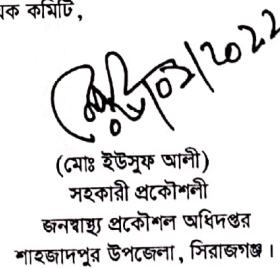 ক কমিটি,
০১/২০২২
(মোঃ ইউসুফ আলী)
সহকারী প্রকৌশলী
জনস্বাস্থ্য প্রকৌশল অধিদপ্তর
শাহজাদপুর উপজেলা, সিরাজগঞ্জ।